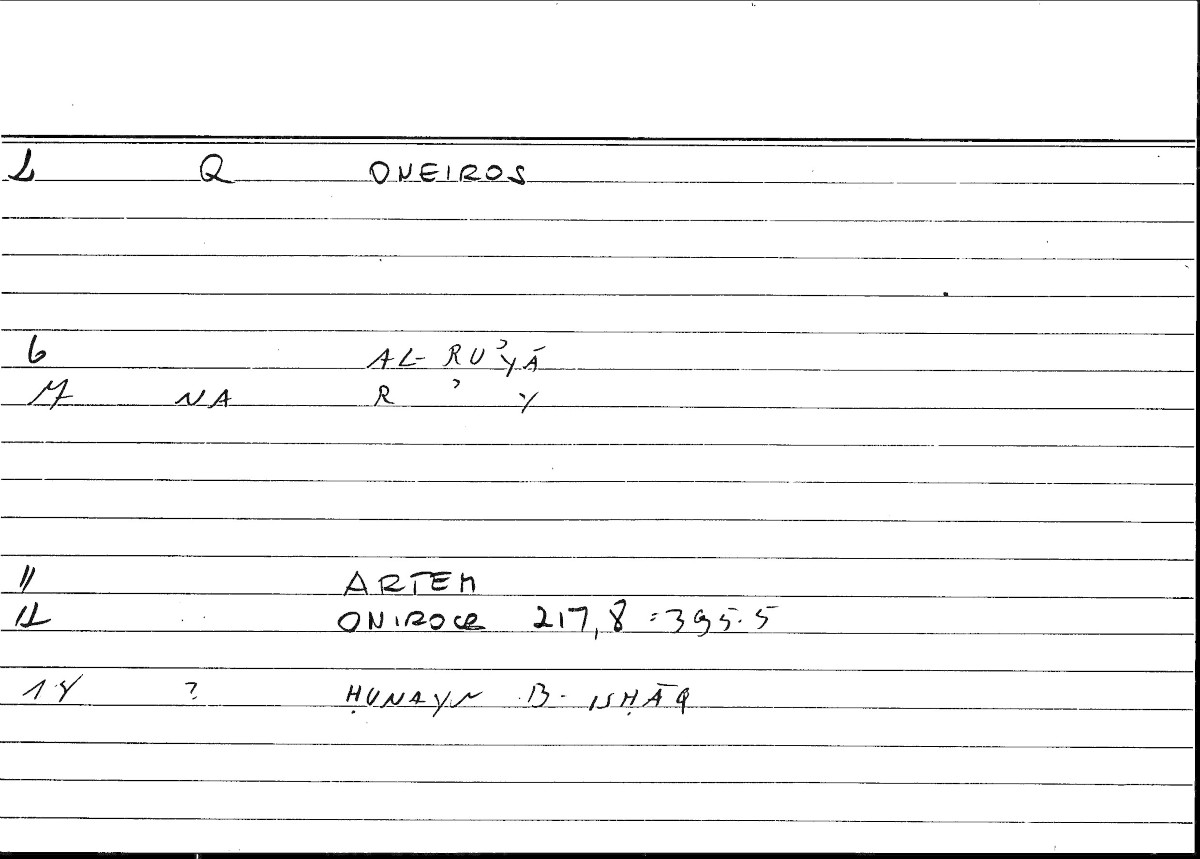 L Q ONEIROS
6 AL-RUʾYĀ
M NA R ʾ Y
11 ARTEM
12 ONIROCR 217,8 = 395.5
18 ? ḤUNAYN B. ISḤĀQ